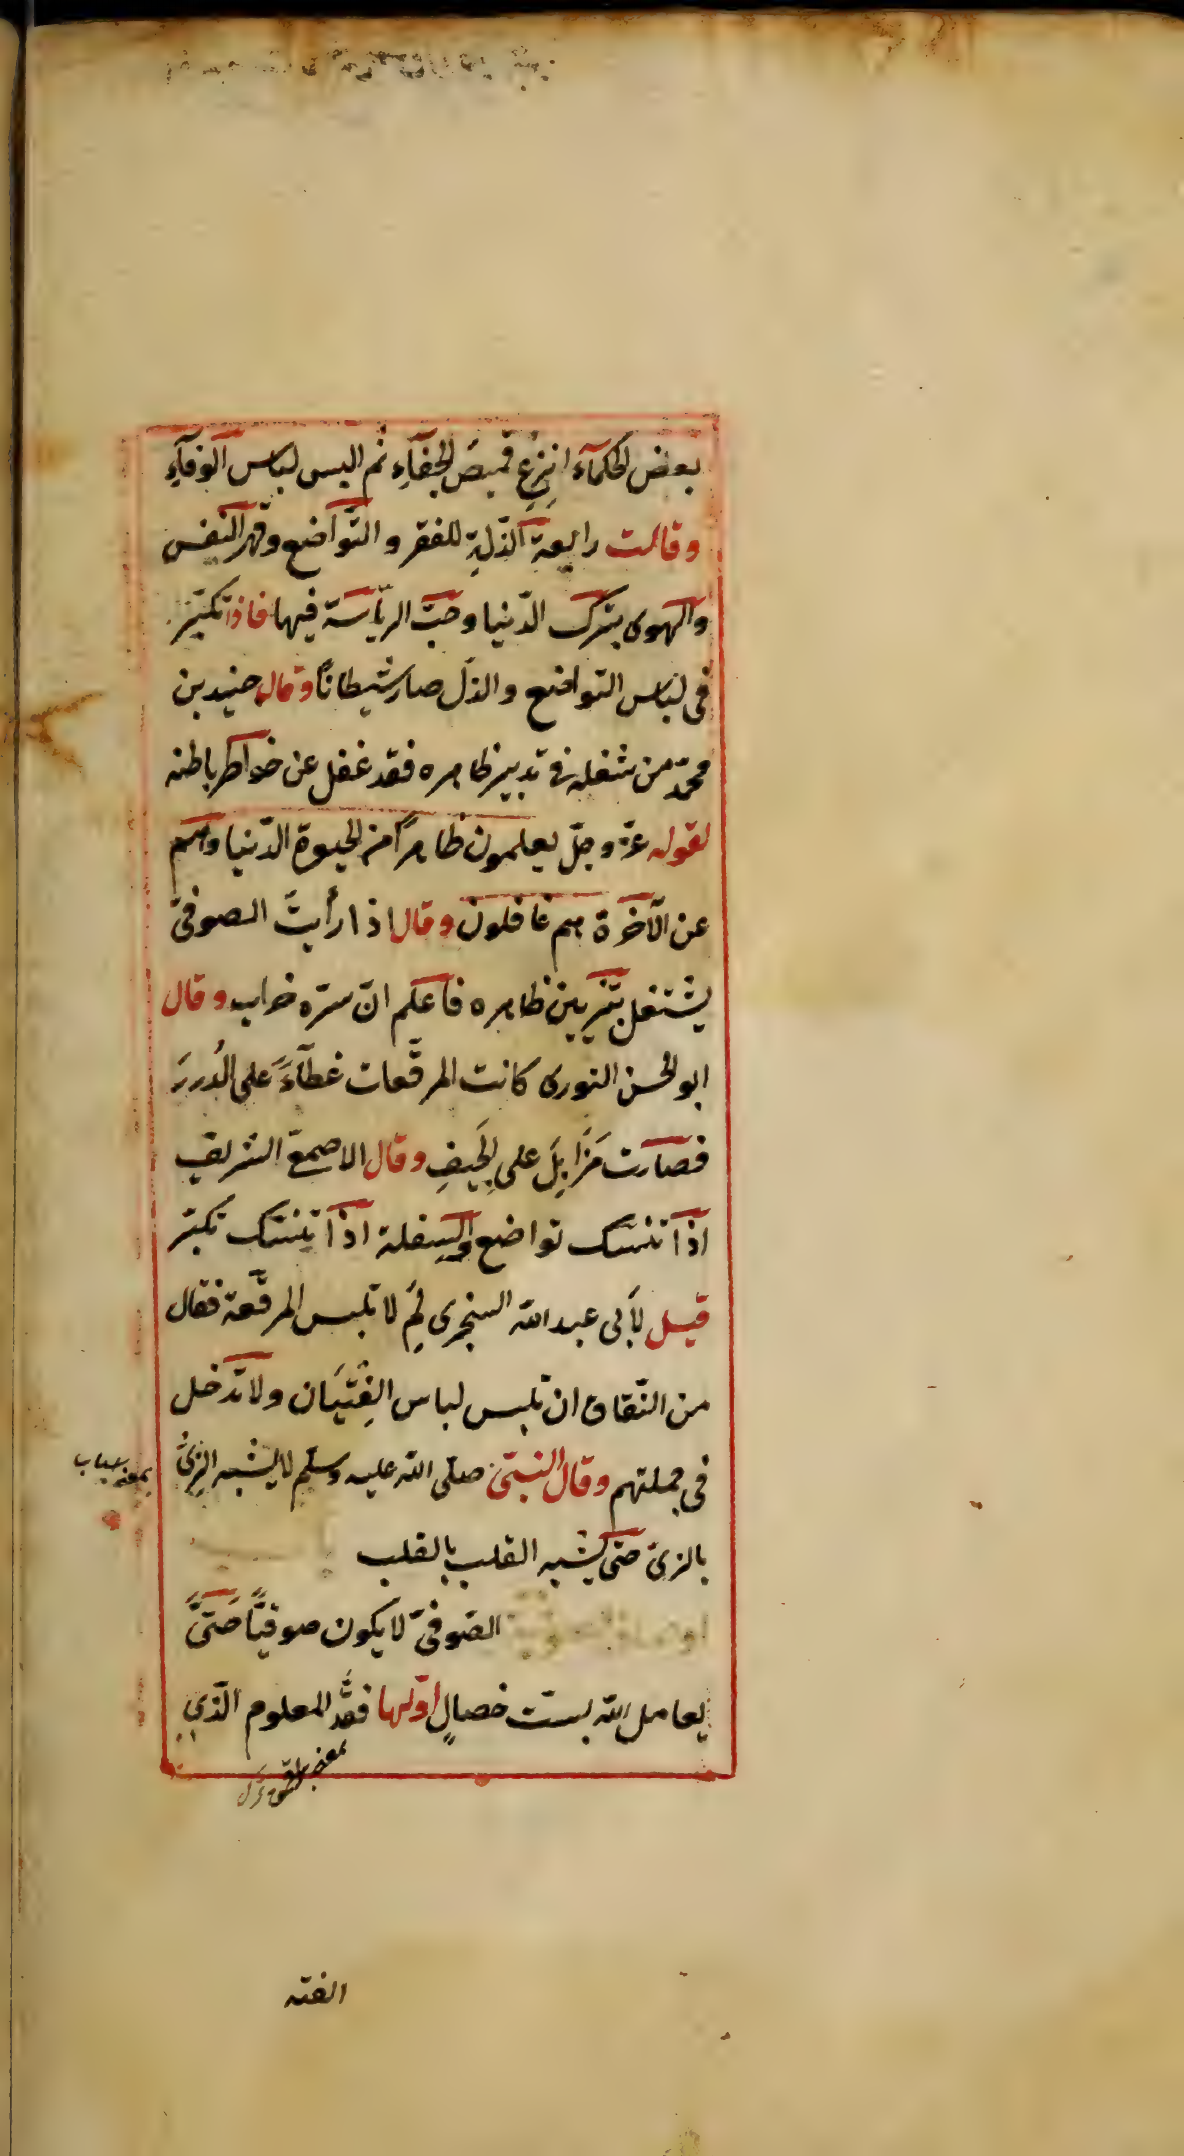 بعض الحكمآء انزِع قميصَ الجفآءِ ثم البس لباس الوفآءِ
وقالت رابعة الذّلّة للفقر والتّواضع وقهر النفس
والهوى بترك الدّنيا وحبّ الرياسة فيها فاذا تكبّر
فى لباس التواضع والذل صار شيطاناً وقال جنيد بن
محمّد من شغله فى تدبير ظاهره فقد غفل عن خواطر باطنه
لقوله عزّ وجلّ يعلمون ظاهراً من الحيوة الدّنيا وهم
عن الآخرة هم غافلون وقال اذا رأيتَ الصوفىّ
يشتغل بتزيين ظاهره فاعلم انّ سرّه خراب وقال
ابو الحسن النورى كانت المرقّعات غطآءً على الدُررَ
فصارت مَزَابِلَ على الجِيَفِ وقال الاصمعىّ الشريف
اذا تنسّك تواضع والسِفلة اذا تنسّك تكبّر
قيل لأَبى عبد اللّه السنجرى لِمَ لا تلبس المرقّعة فقال
من النّفاق ان تلبس لباس الفِتْيَان ولا تدخل
فى جملتهم وقال النبىّ صلّى اللّه عليه وسلّم لا يشبه الزِىُّ
بالزىّ حتى يشبه القلب بالقلب
الصّوفىّ لا يكون صوفيّاً حَتّىَ
يعامل اللّه بستّ خصالٍ اوّلها فقَدُ المعلوم الّذى
الفته